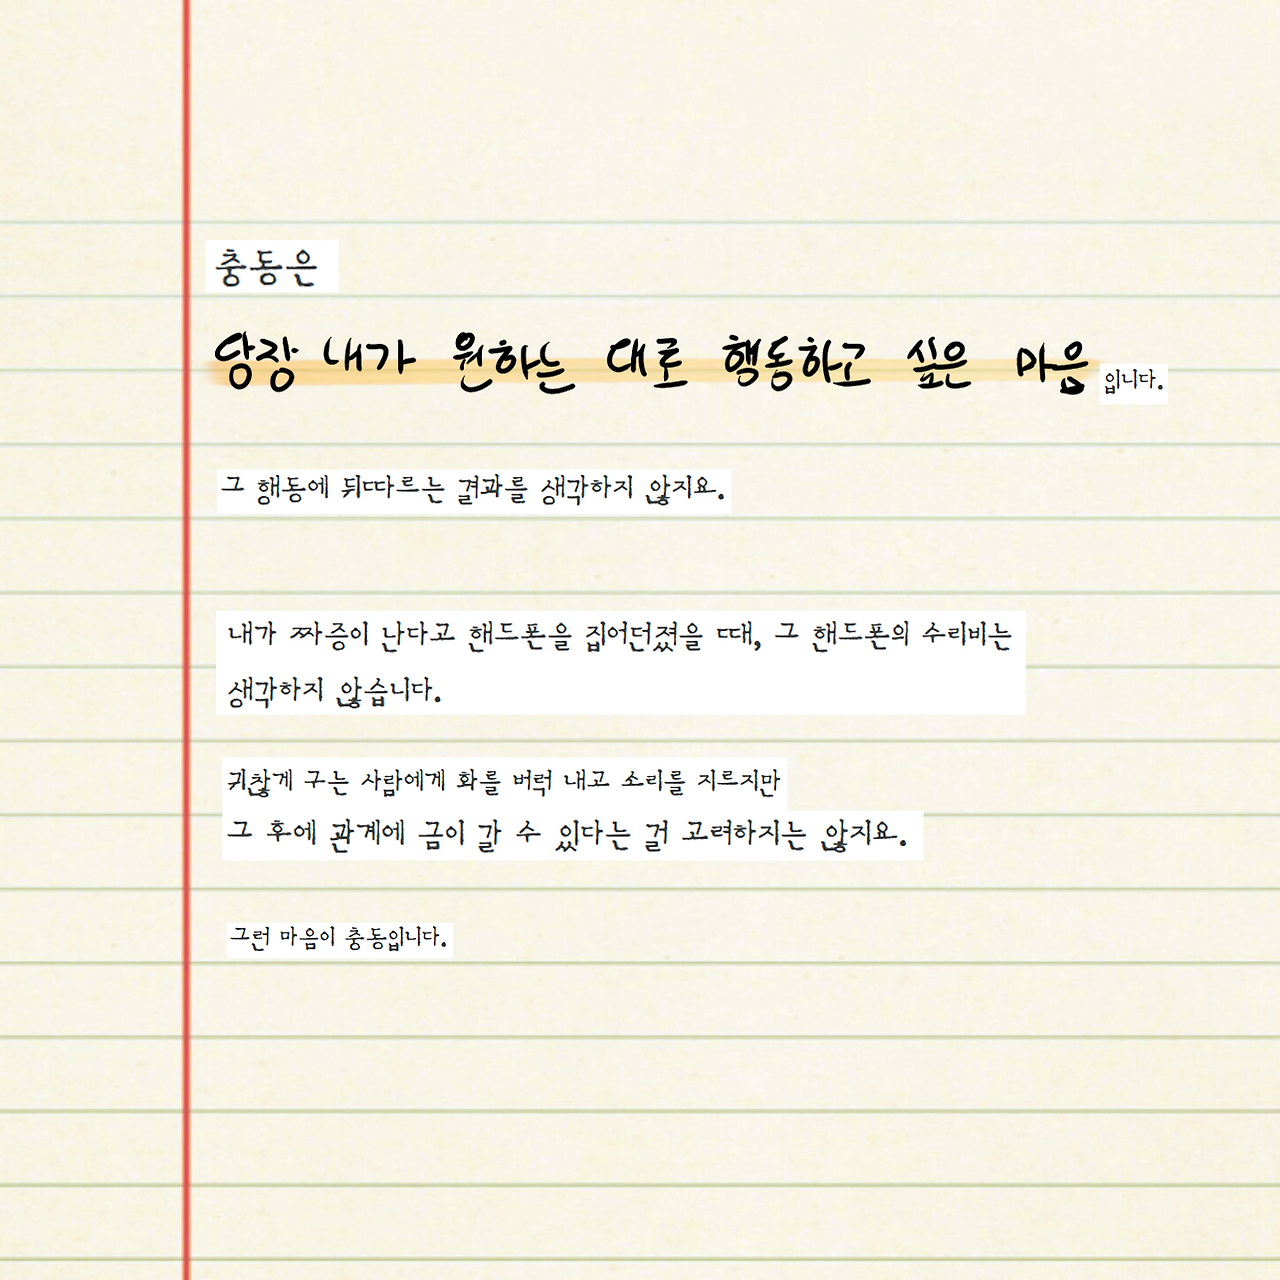 충동은
당장 내가 원하는 대로 행동하고 싶은 마음입니다.
그 행동에 뒤따르는 결과를 생각하지 않지요.
내가 짜증이 난다고 핸드폰을 집어던졌을 때, 그 핸드폰의 수리비는
생각하지 않습니다.
귀찮게 구는 사람에게 화를 버럭 내고 소리를 지르지만
그 후에 관계에 금이 갈 수 있다는 걸 고려하지는 않지요.
그런 마음이 충동입니다.